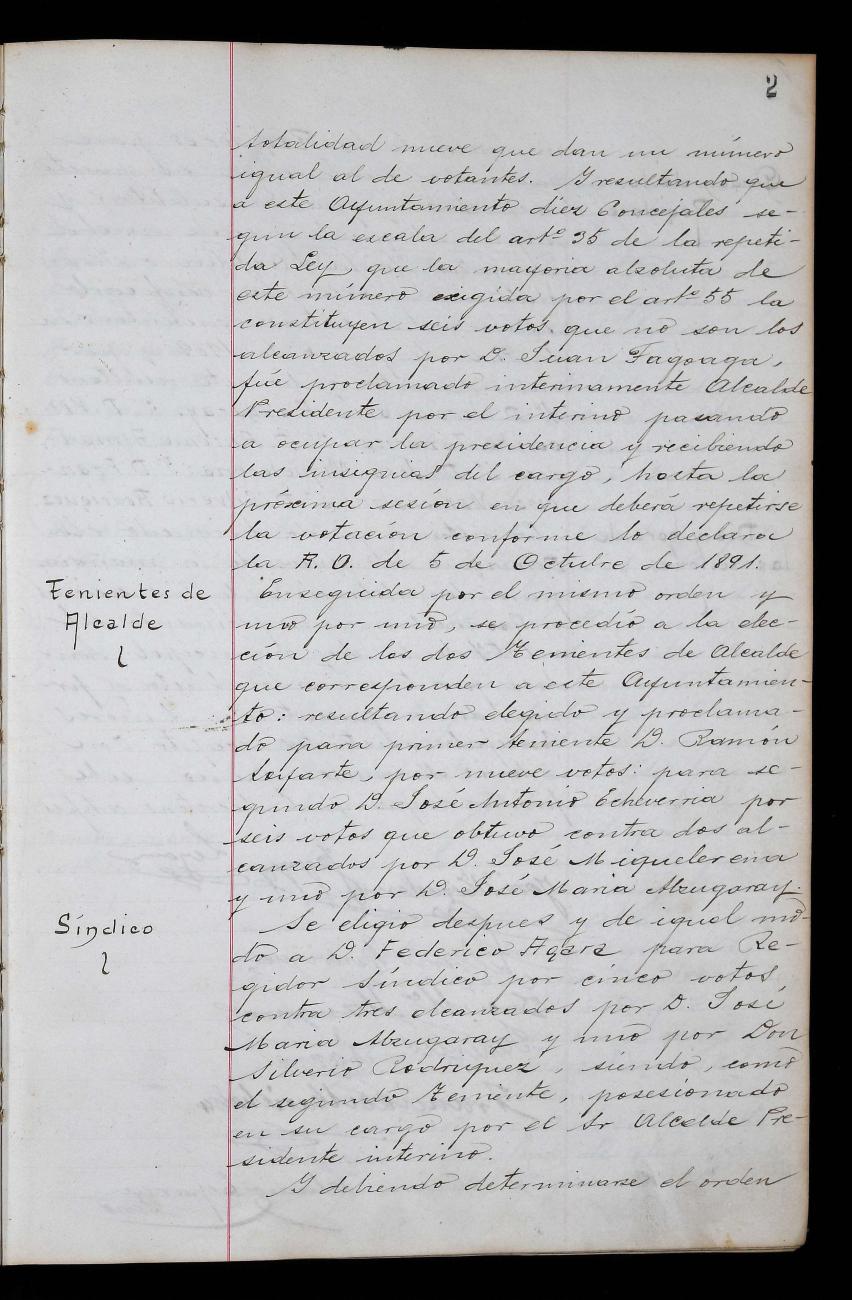 2
totalidad nueve que dan un número
igual al de votantes. Y resultando que
a este Ayuntamiento diez Concejales se-
gún la escala del artº 35 de la repeti-
da Ley, que la mayoria absoluta de
este número exigida por el artº 55 la
constituyen seis votos que no son los
alcanzados por D. Juan Fagoaga,
fúe proclamado interinamente Alcalde
Presidente por el interino pasando
a ocupar la presidencia y recibiendo
las insignias del cargo, hasta la
próxima sesión en que deberá repetirse
la votación conforme lo declara
la R. O. de 5 de Octubre de 1891.
Tenientes de
Alcalde
Enseguida por el mismo orden y
uno por uno, se procedió a la elec-
ción de los dos Tenientes de Alcalde
que corresponden a este Ayuntamien-
to: resultando elegido y proclama-
do para primer teniente D. Ramón
por nueve votos: para se-
gundo D. José Antonio Echeverria por
seis votos que obtuvo contra dos al-
canzados por D. José Miquelerena
y uno por D. José Maria Alzugaray.
Síndico
Se eligio despues y de igual mo-
do a D. Federico para Re-
gidor Síndico por cinco votos
contra tres alcanzados por D. José
Maria Alzugaray y uno por Don
Silverio Rodriguez, siendo, como
el segundo Teniente, posesionado
en su cargo por el Sr Alcalde Pre-
sidente interino.
Y debiendo determinarse el orden